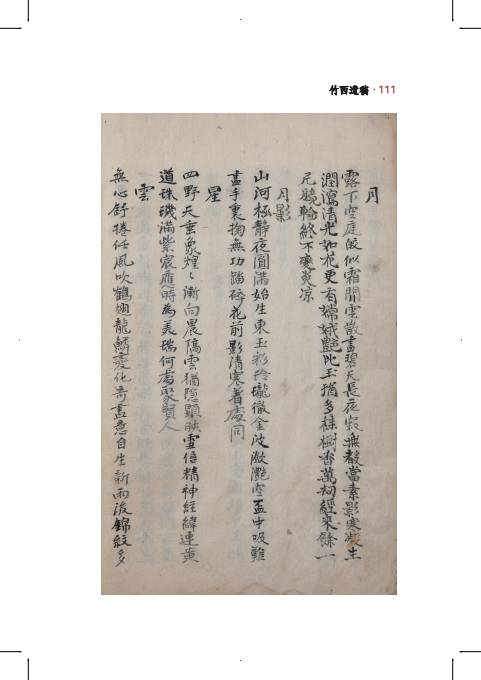 竹西遺稿 · 111
月
露下空庭皎似霜閒雲散盡碧天長夜寂無聲當素影寒凝生
潤瀉清光如花更有嫦娥艷比玉猶多桂樹香萬劫經來餘一
尺驗輪終不變炎凉
月影
山河極靜夜圓滿始生東玉彩玲瓏徹金波瀲灧空盃中吸難
盡手裏掬無功踏碎花前影清寒着處同
星
四野天垂象煌〻漸向晨隔雲猶隱顯映雪倍精神經緯連黃
道珠璣滿紫宸應時為美瑞何處聚賢人
雲
無心舒捲任風吹鶴翅龍鱗變化奇盡意自生新雨後錦紋多